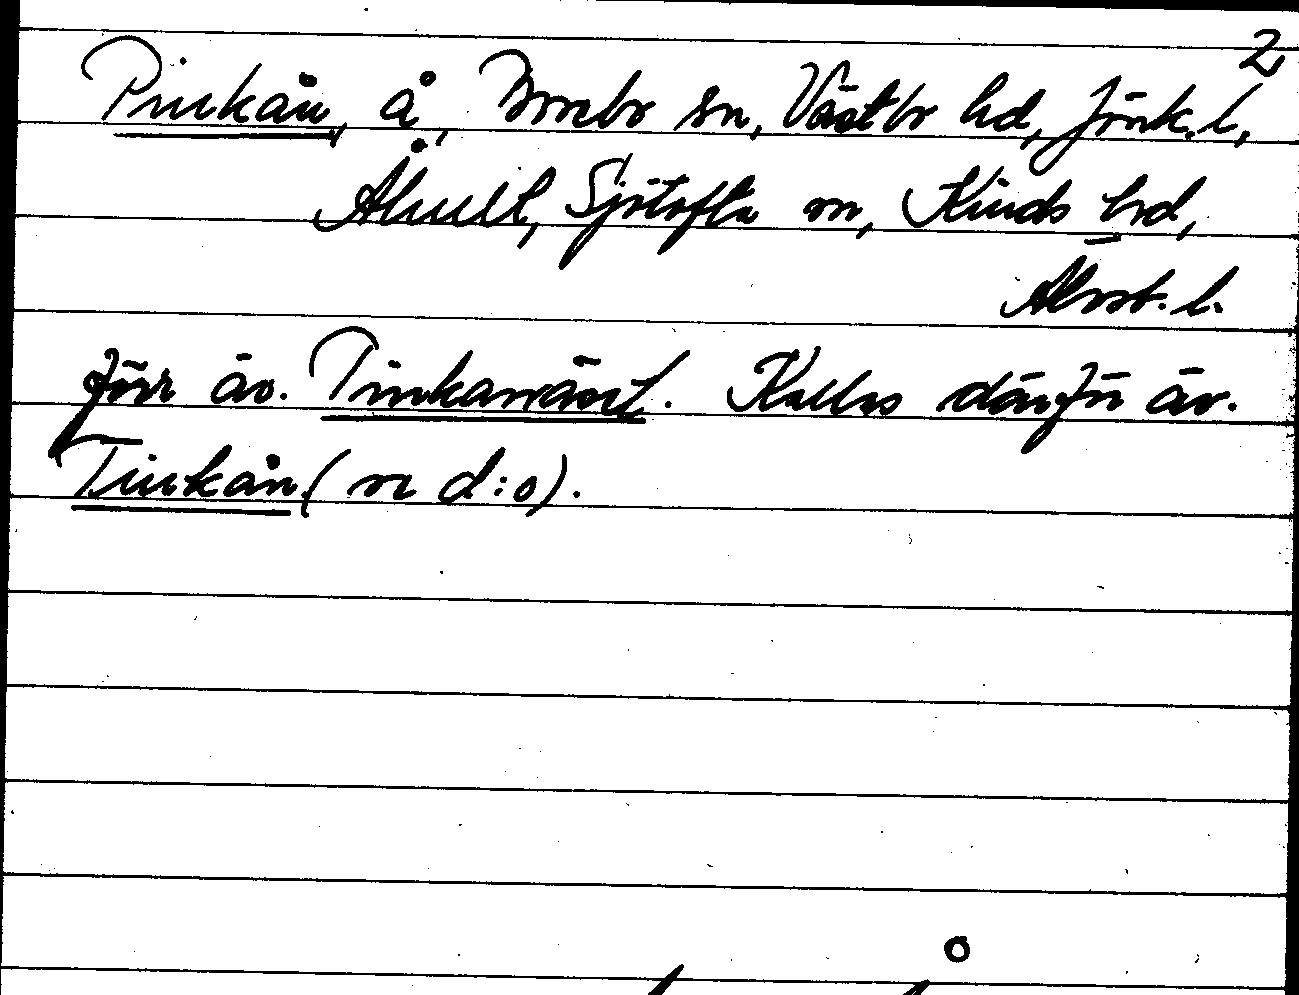 2
Pinkån, å, Småbr sn, Västbo hd, Jönk. l.
Ålmult, Sjötofta sn, Kinds hd,
Älvsb. l.
förr äv. Tinkaward. Kallas därför äv.
Tinkån (se d:o).